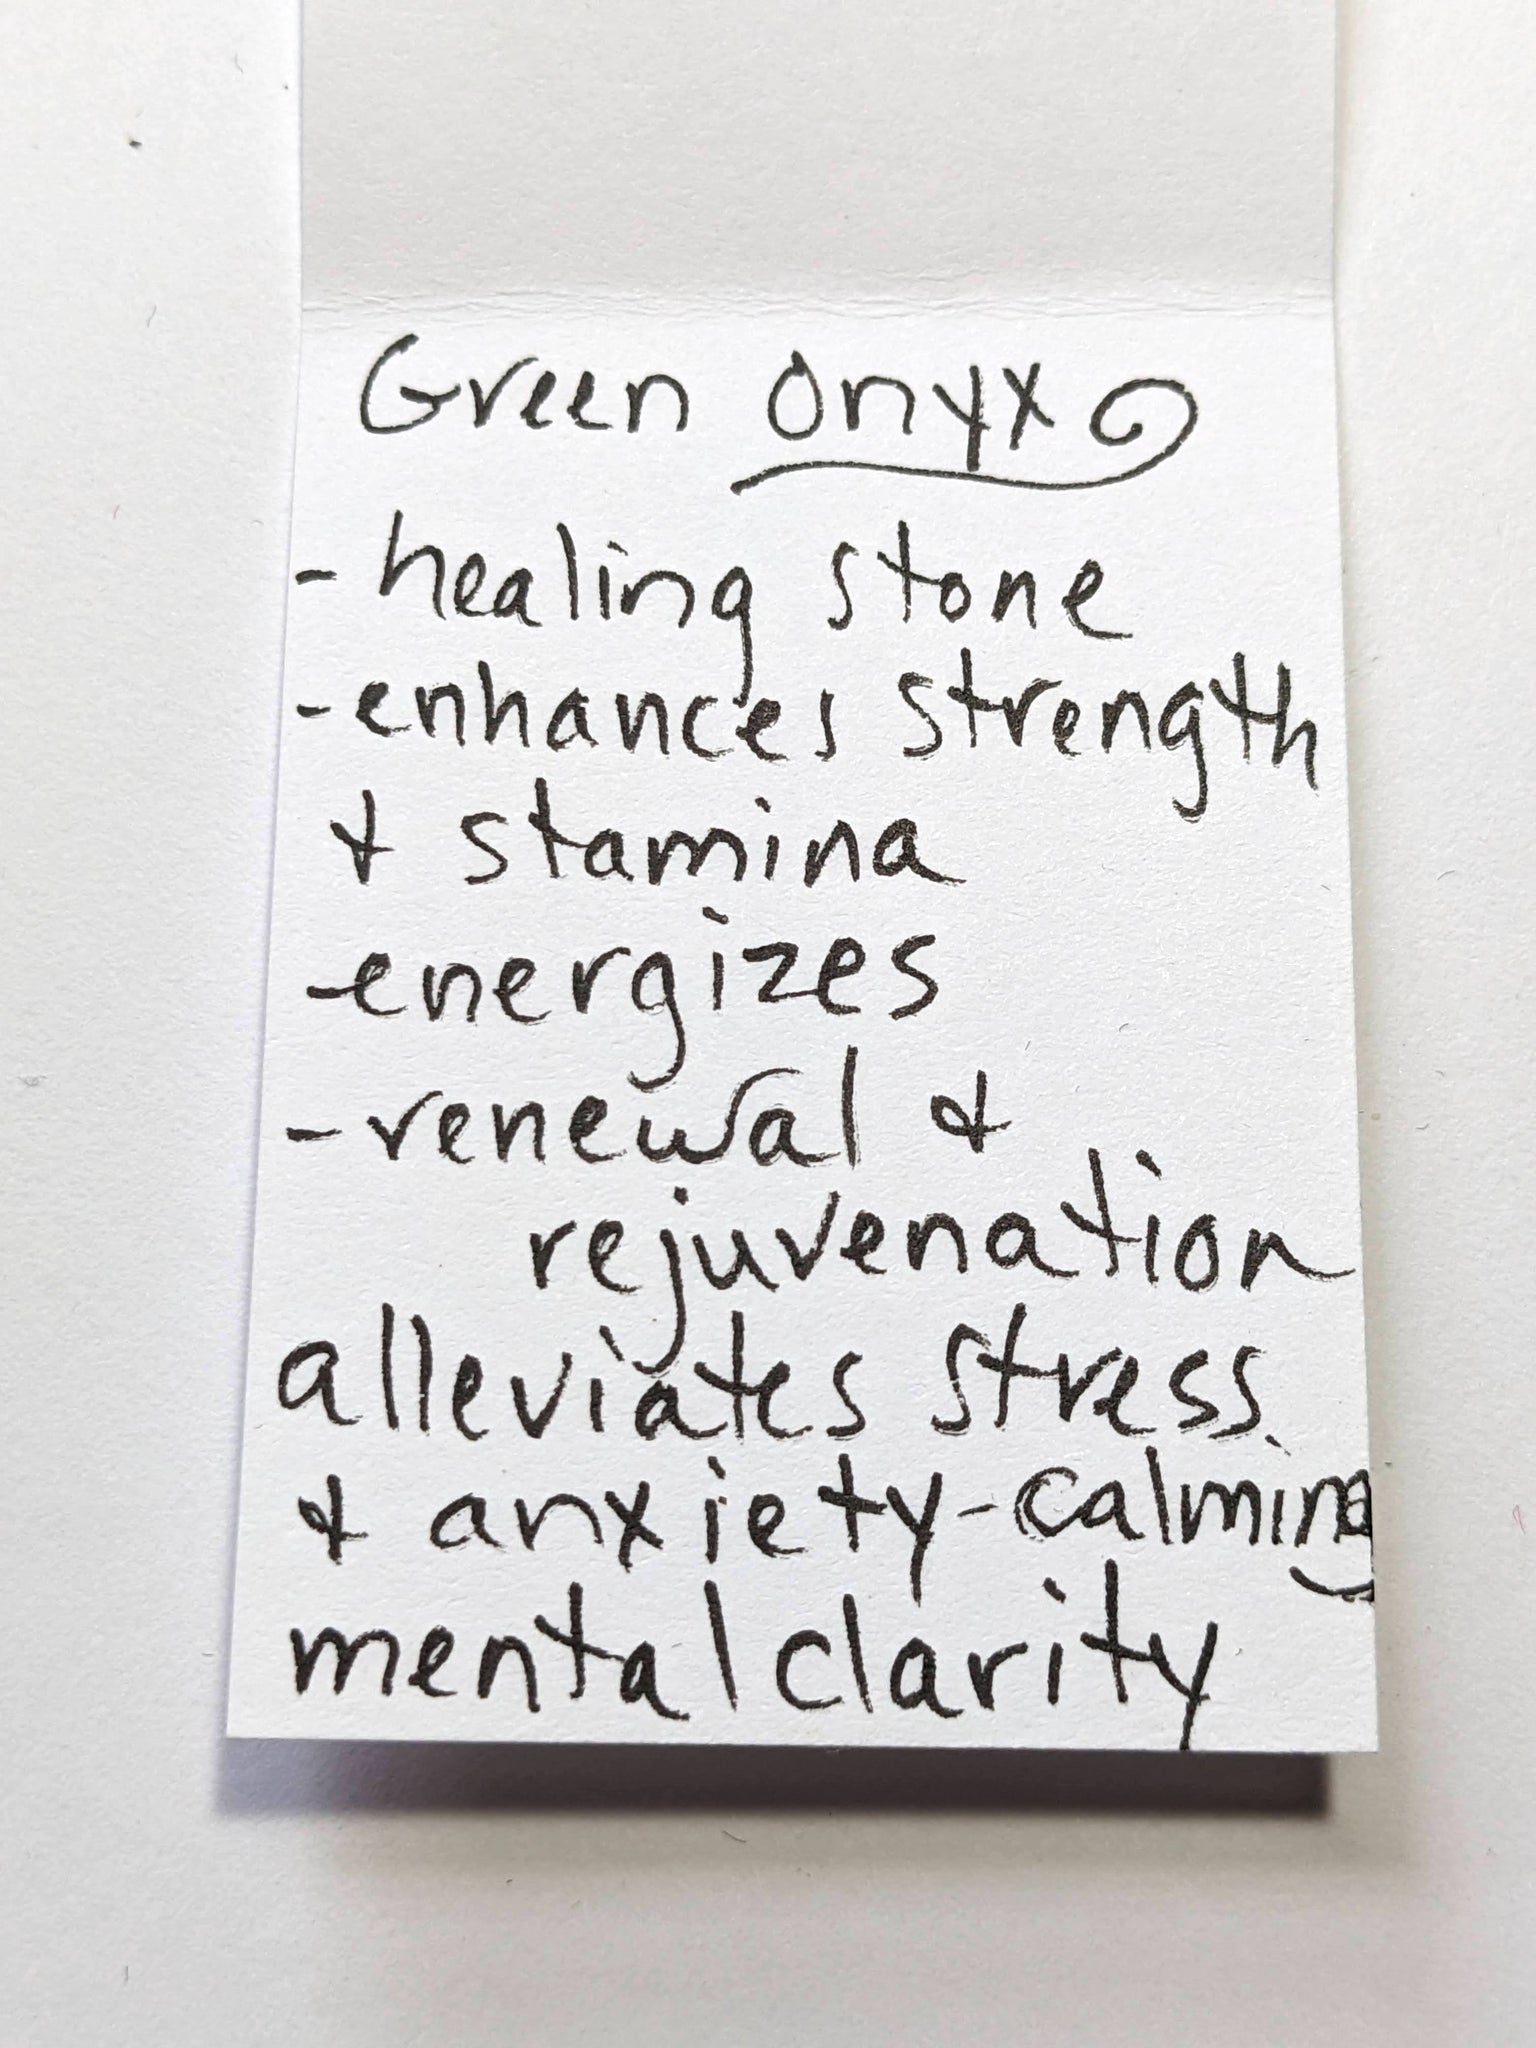 Green Onyx
- healing stone
- enhances strength
& stamina
- energizes
- renewal &
rejuvenation
alleviates stress
& anxiety - calming
mental clarity